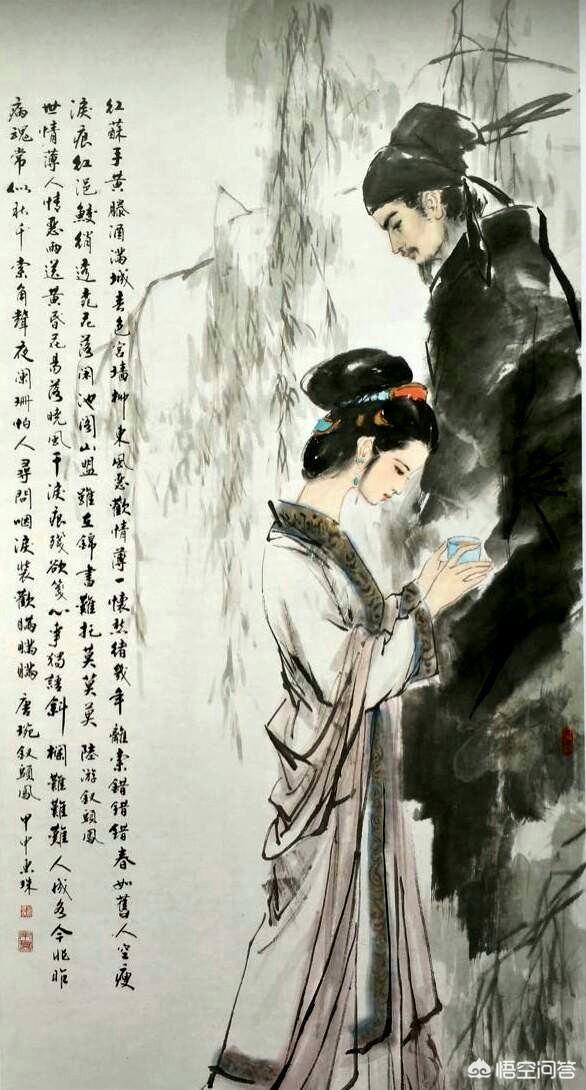 红蘇手黄滕酒滿城春色宮墻柳東風惡歡情薄一懷愁緒幾年離索錯錯錯春如舊人空瘦
淚痕紅浥鮫綃透桃花落閑池閣山盟雖在錦書難托莫莫莫 陸游釵頭鳳
世情薄人情惡雨送黄昏花易落曉風干淚痕殘欲箋心事獨語斜欄難難難人成各今非昨
病魂常似秋千索角聲夜闌珊怕人尋問咽淚裝歡瞞瞞瞞 唐琬釵頭鳳 甲申惠珠
悟空问答